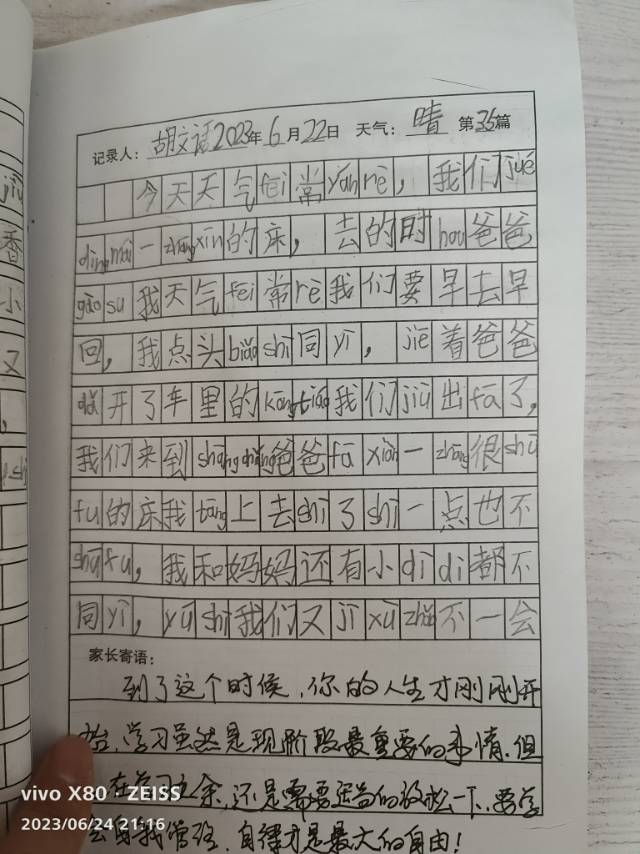 记录人：胡文诺 2023年6月22日 天气：晴 第36篇
今天天气fēi常yánrè，我们jué
dìngmǎi一zhāngxīn的床，去的时hou爸爸
gàosu我天气fēi常rè我们要早去早
回，我点头biǎoshì同yì，jiē着爸爸
开了车里的kōngtiáo我们jiù出fā了，
我们来到shāngchǎng爸爸fā xiàn一zhāng很shū
fu的床我tǎng上去shì了shì一点也不
shūfu，我和妈妈还有小dìdi都不
同yì，yúshì我们又jìxùzhǎo不一会
家长寄语：
到了这个时候，你的人生才刚刚开
始，学习虽然是现阶段最重要的事情，但
在学习之余，还是需要适当的放松一下，要学
会自我管理，自律才是最大的自由！
vivo X80 · ZEISS
2023/06/24 21:16